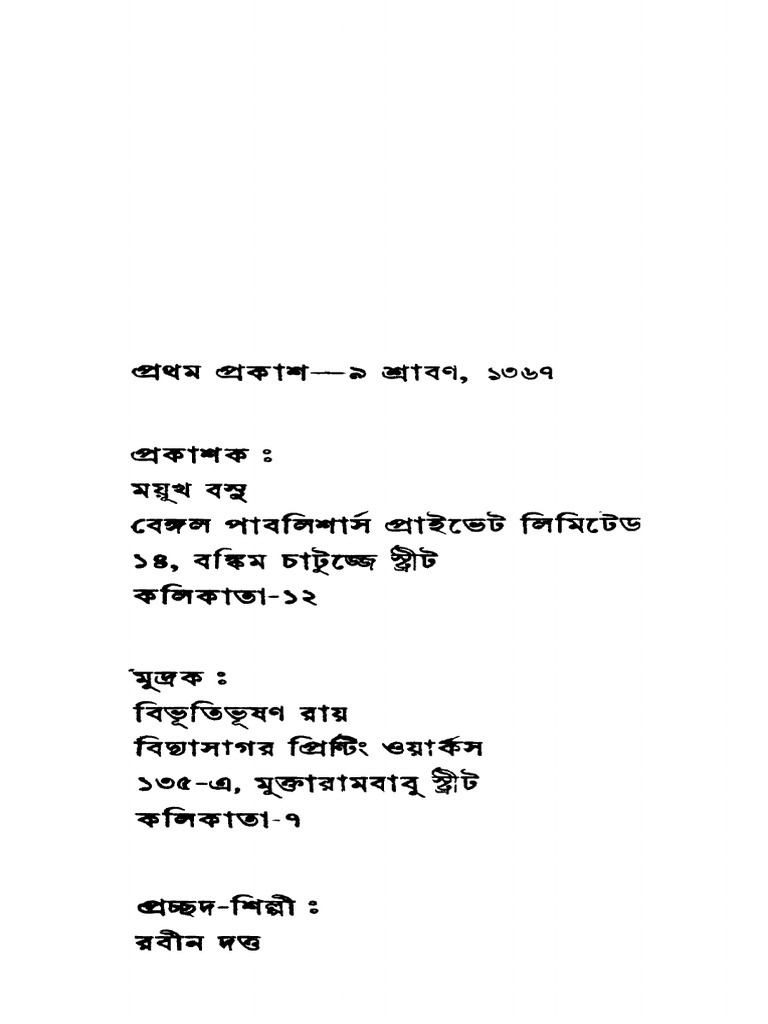 প্রথম প্রকাশ—৯ শ্রাবণ, ১৩৬৭
প্রকাশক :
ময়ুখ বসু
বেঙ্গল পাবলিশার্স প্রাইভেট লিমিটেড
১৪, বঙ্কিম চাটুজ্জে স্ট্রীট
কলিকাতা-১২
মুদ্রক :
বিভূতিভূষণ রায়
বিদ্যাসাগর প্রিন্টিং ওয়ার্কস
১৩৫-এ, মুক্তারামবাবু স্ট্রীট
কলিকাতা-৭
প্রচ্ছদ-শিল্পী :
রবীন দত্ত